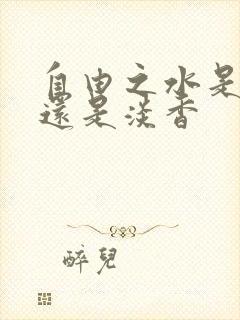 自由之水是
還是淡香
醉兒